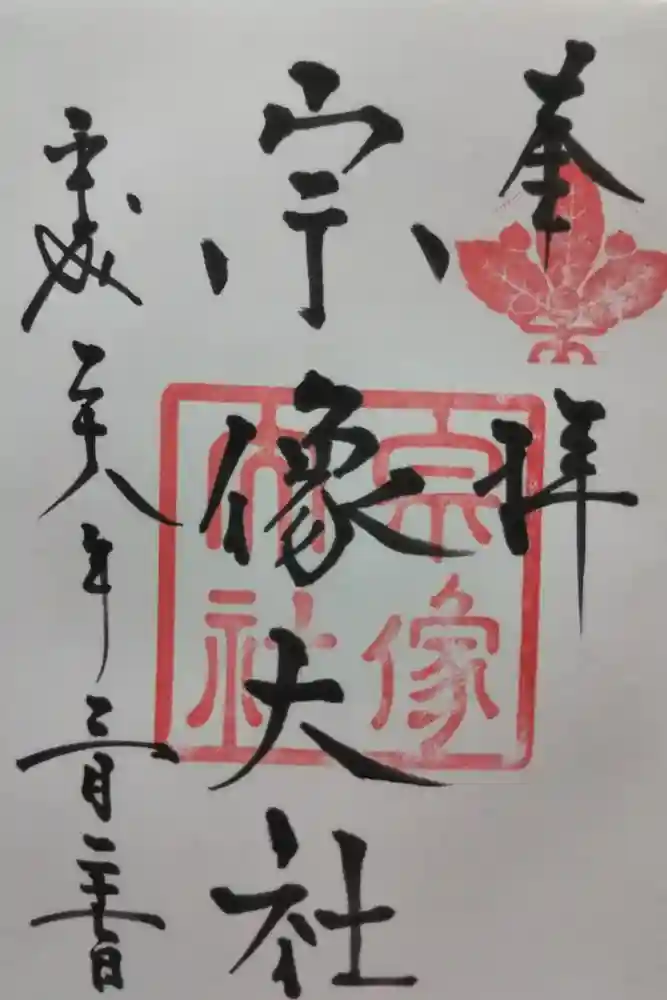 奉拝
宗像大社
平成二十八年三月二十七日
宗像
大社